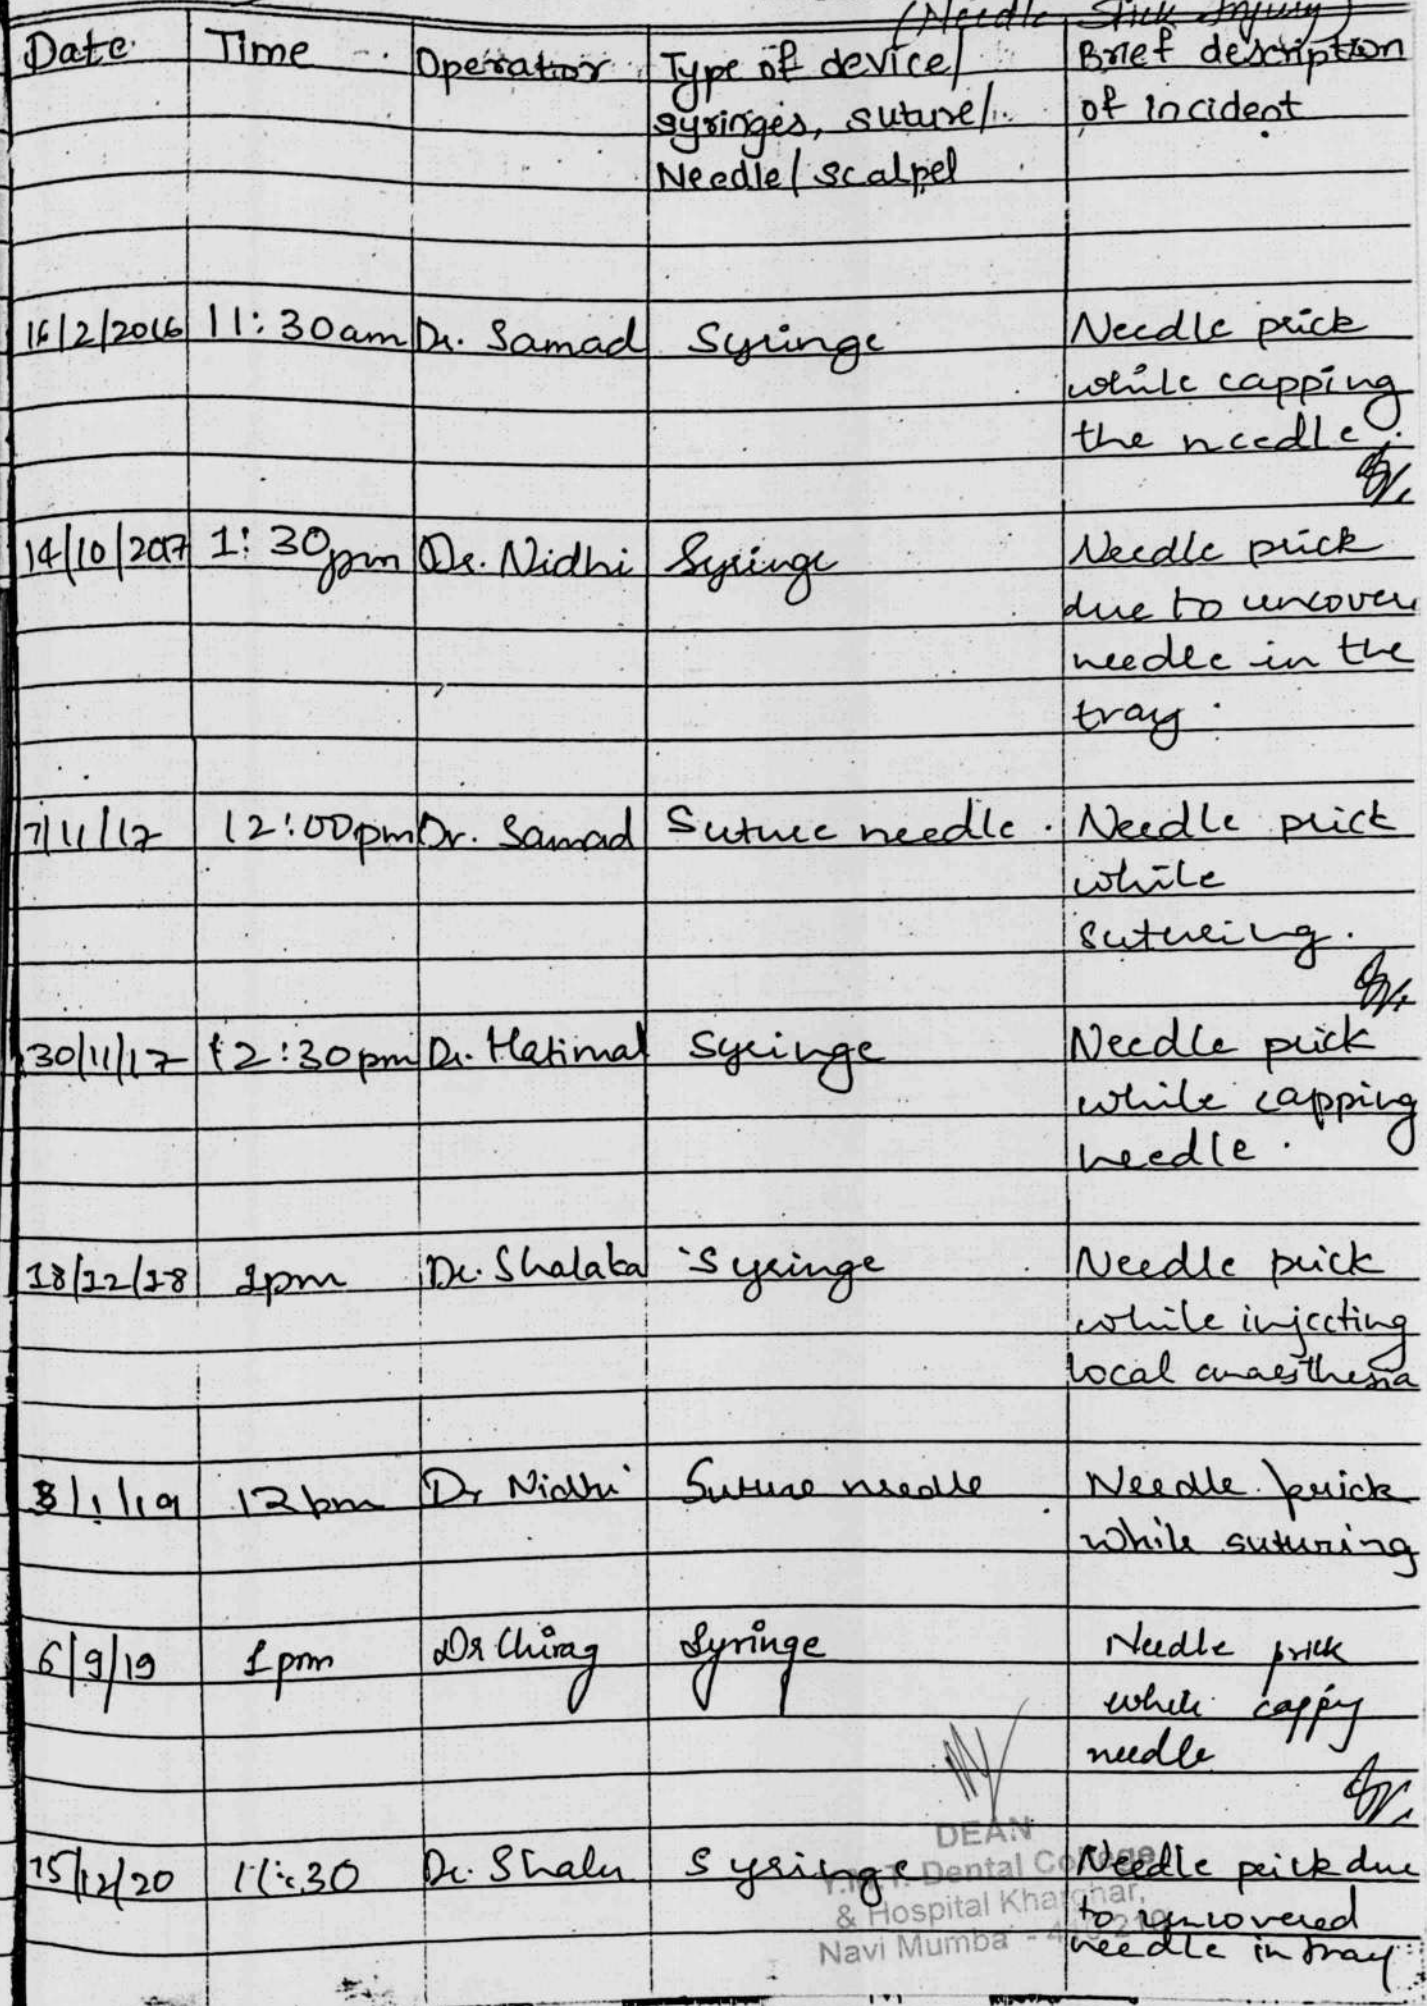 (Needle Stick Injury)
Date Time Operator Type of device/ Brief description
syringes, suture/ of incident
Needle/ scalpel
16/2/2016 11:30am Dr. Samad Syringe Needle prick
while capping
the needle.
14/10/2017 1:30pm Dr. Nidhi Syringe Needle prick
due to uncover
needle in the
tray.
7/11/17 12:00pm Dr. Samad Suture needle. Needle prick
while
suturing.
30/11/17 12:30pm Dr. Hatimal Syringe Needle prick
while capping
needle.
18/12/18 1pm Dr. Shalaka Syringe Needle prick
while injecting
local anaesthesia
8/1/19 12pm Dr Nidhi Suture needle Needle prick
while suturing
6/9/19 1pm Dr Chirag Syringe Needle prick
while cappig
needle
15/12/20 11:30 Dr. Shalu Syringe Needle prick due
to uncovered
needle in tray
DEAN
Y.M.T. Dental College
& Hospital Kharghar,
Navi Mumba - 410 210